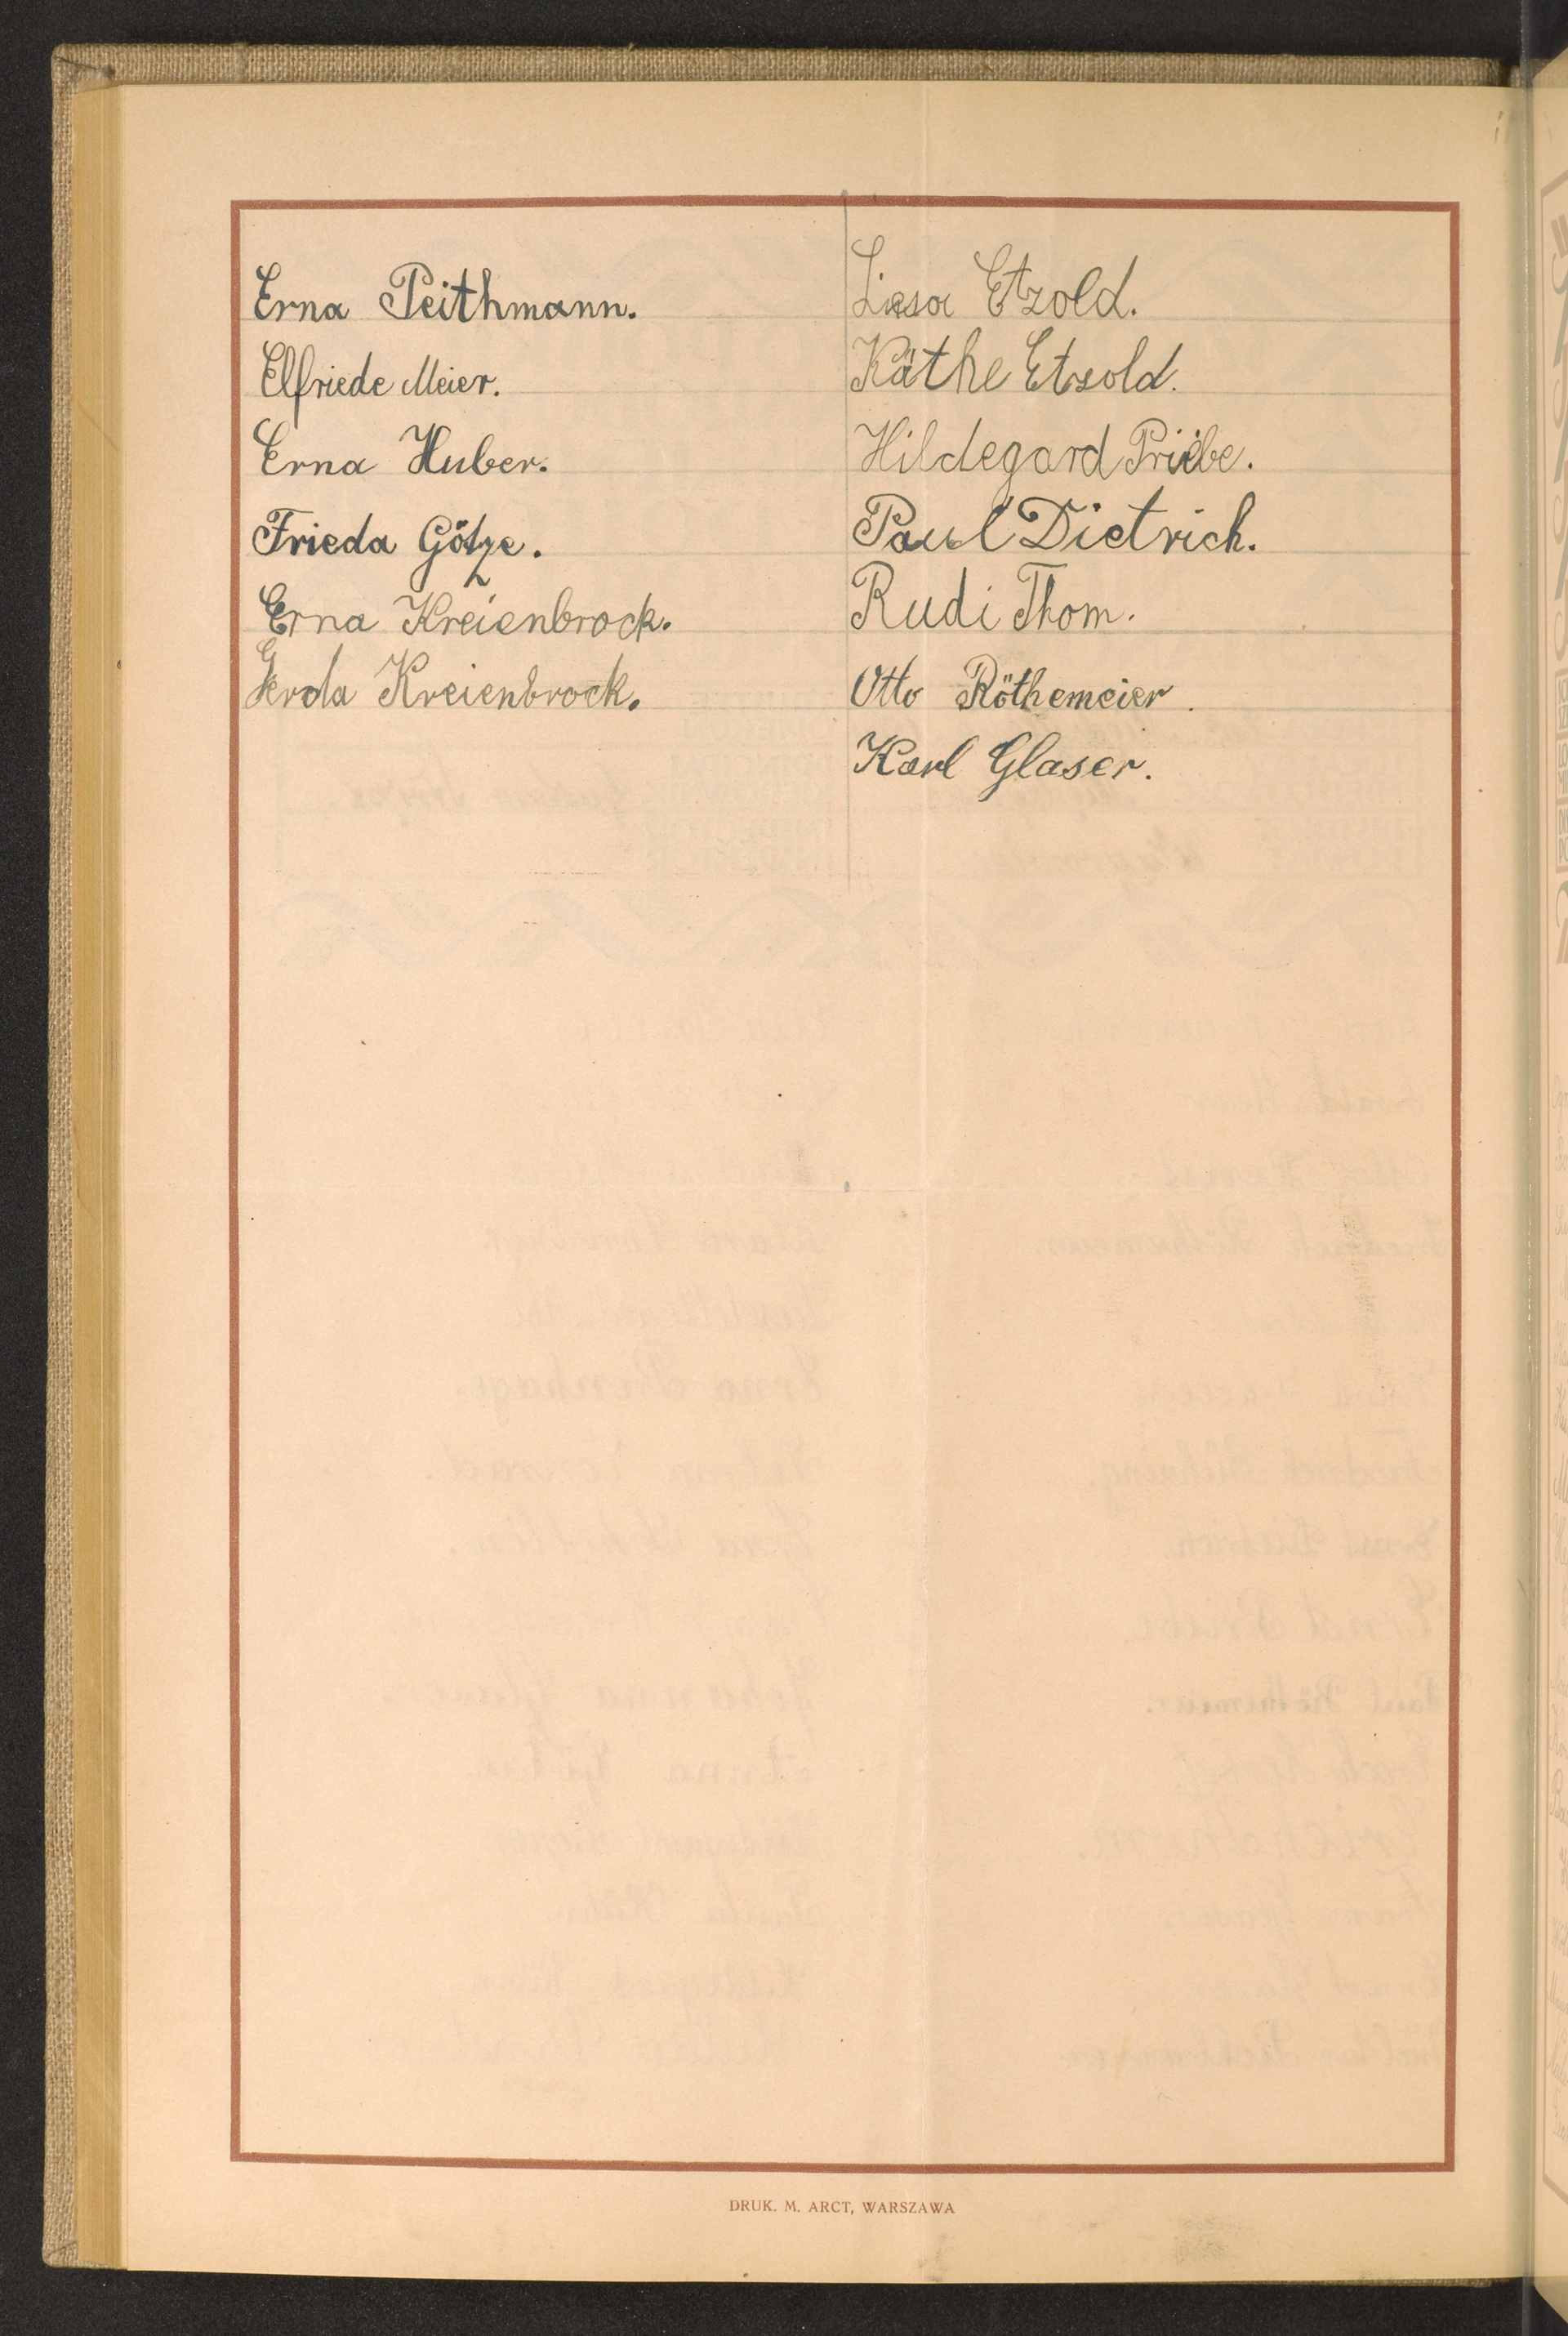 Erna Peithmann.
Elfriede Meier.
Erna Huber.
Frieda Götze.
Erna Kreienbrock.
Gerda Kreienbrock.
Liesa Etzold.
Käthe Etzold.
Hildegard Priebe.
Paul Dietrich.
Rudi Thom.
Otto Röthemeier.
Karl Glaser.
DRUK. M. ARCT, WARSZAWA